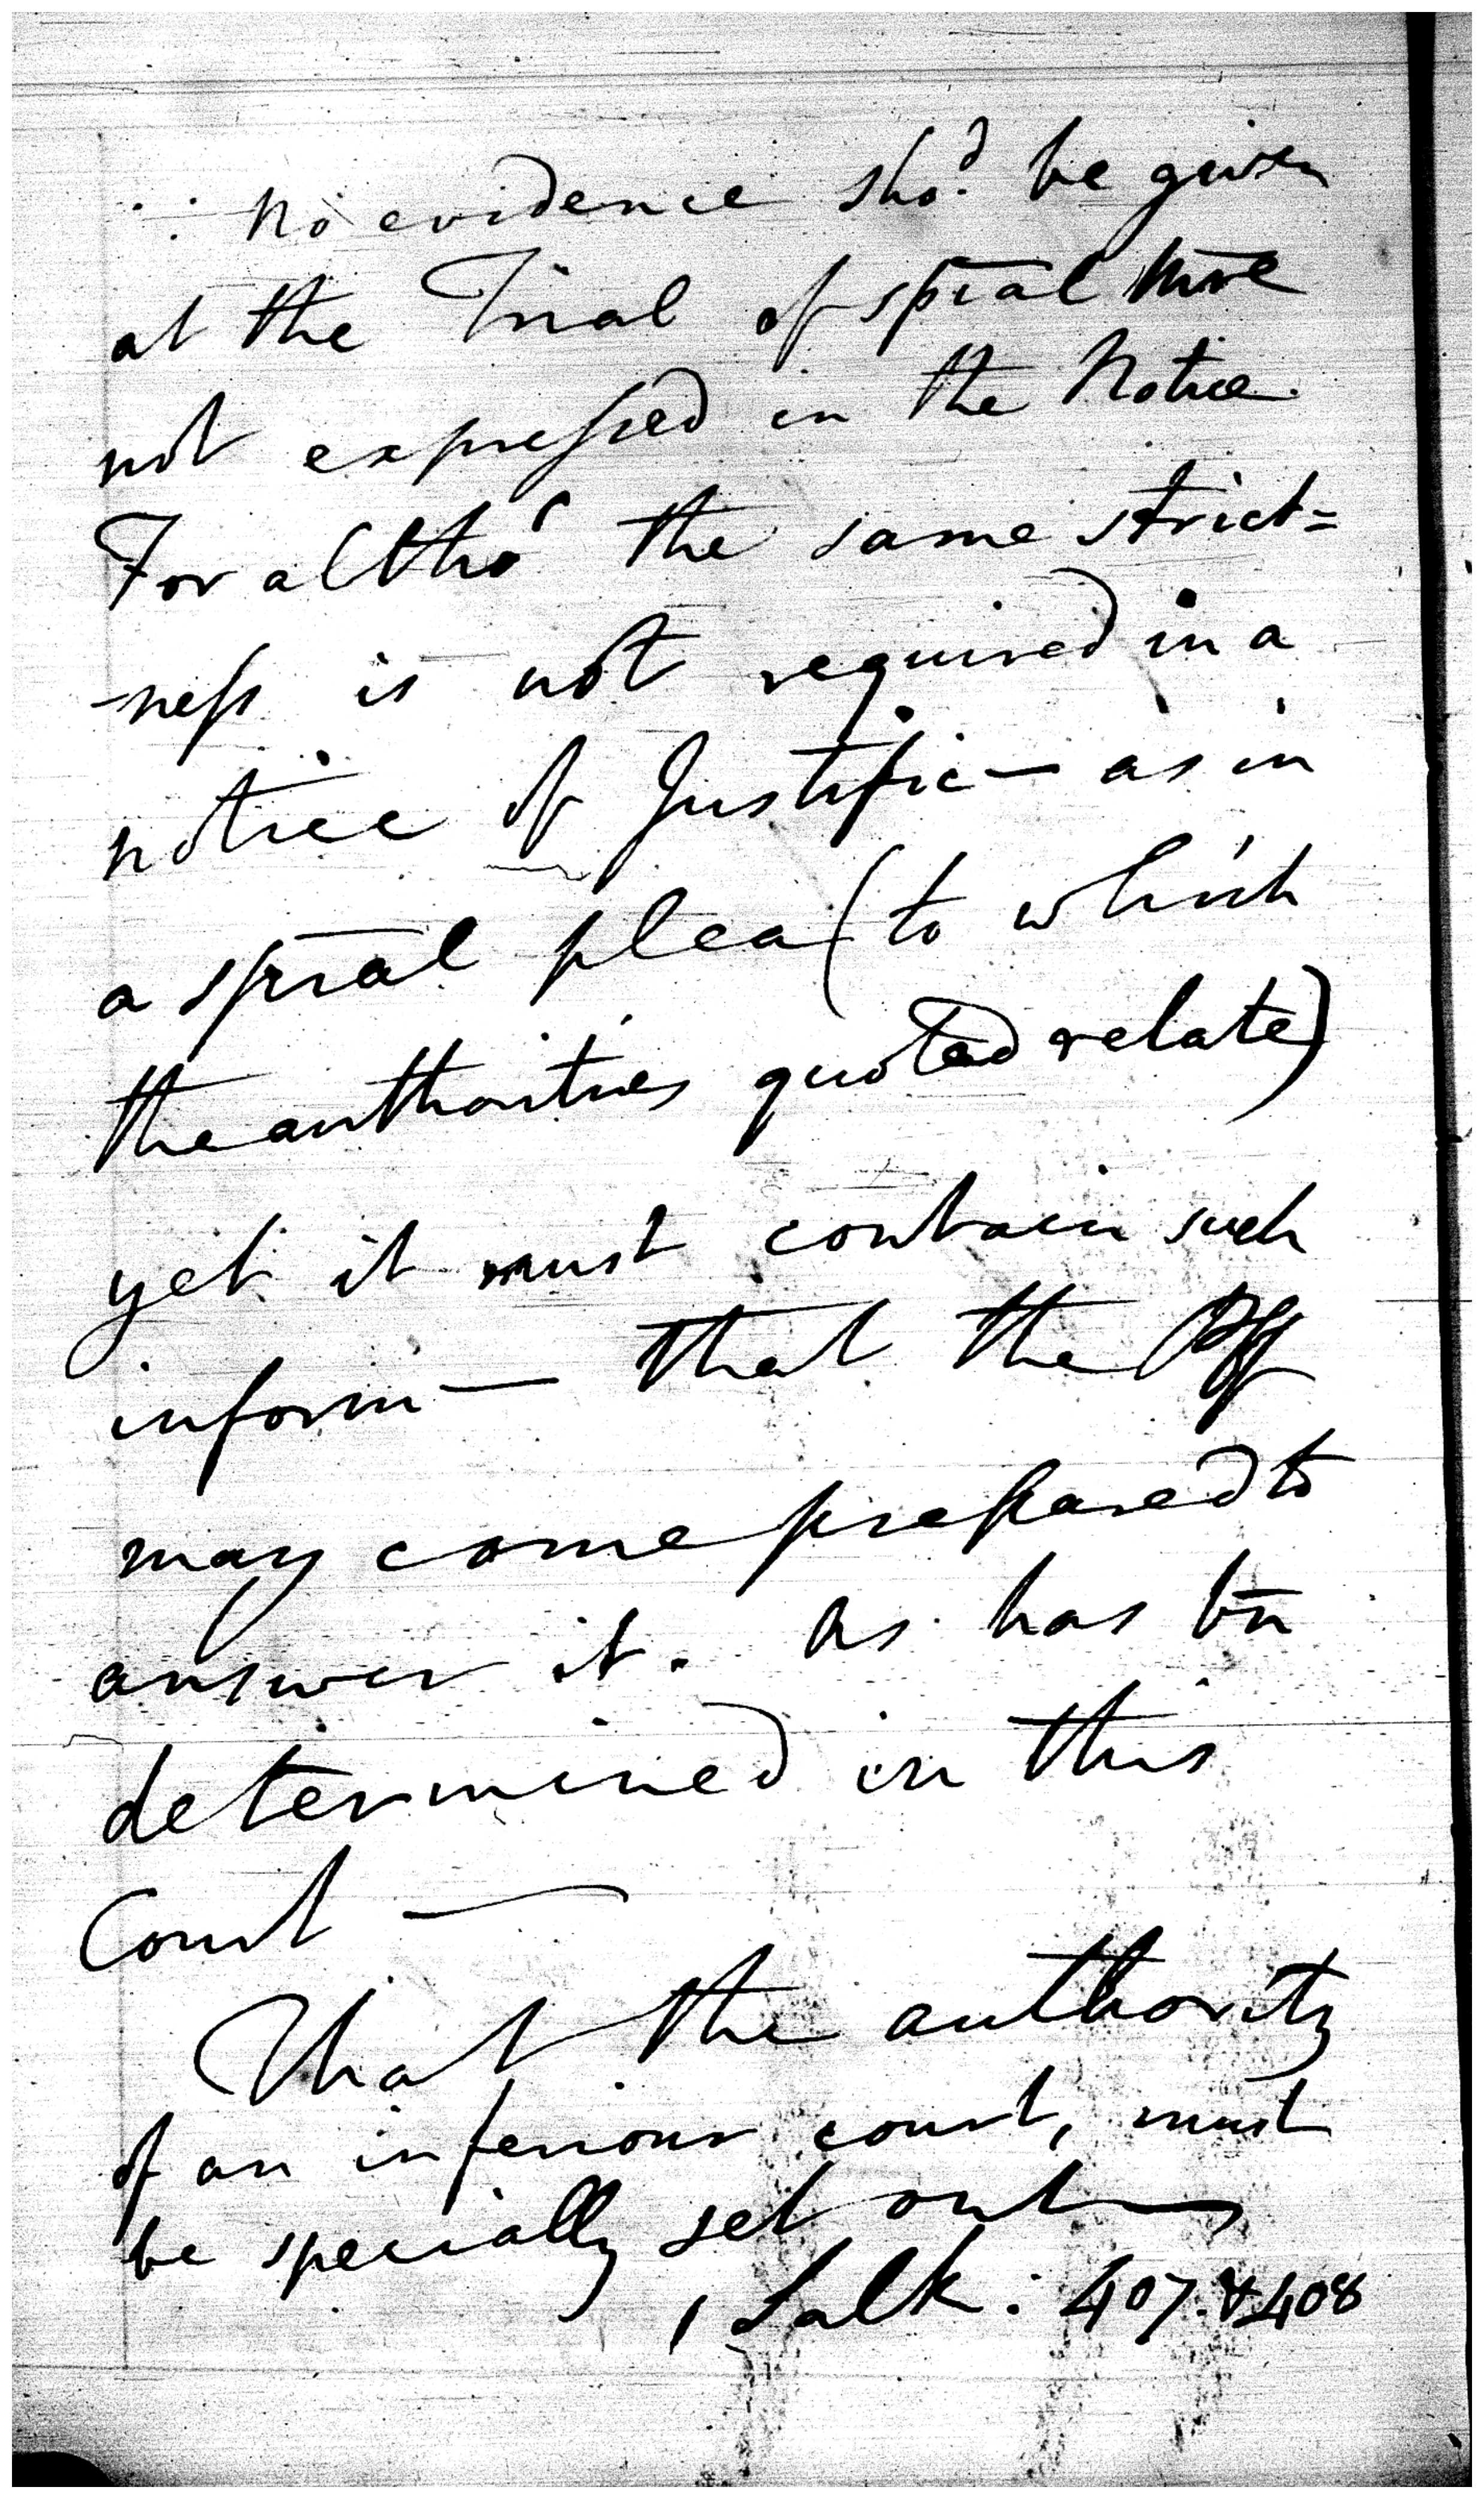 ∴ No evidence sho.d be given
at the Trial of spīal more
not expressed in the Notice.
For altho' the same strict=
-ness is not required in a
notice of Justific— as in
a spīal plea (to which
the authorities quoted relate)
yet it must contain such
inform— that the Plff
may come prepared to
answer it. As has bn̄
determined in this
Court —
That the authority
of an inferiour court, must
be specially set out
1 Salk: 407. & 408